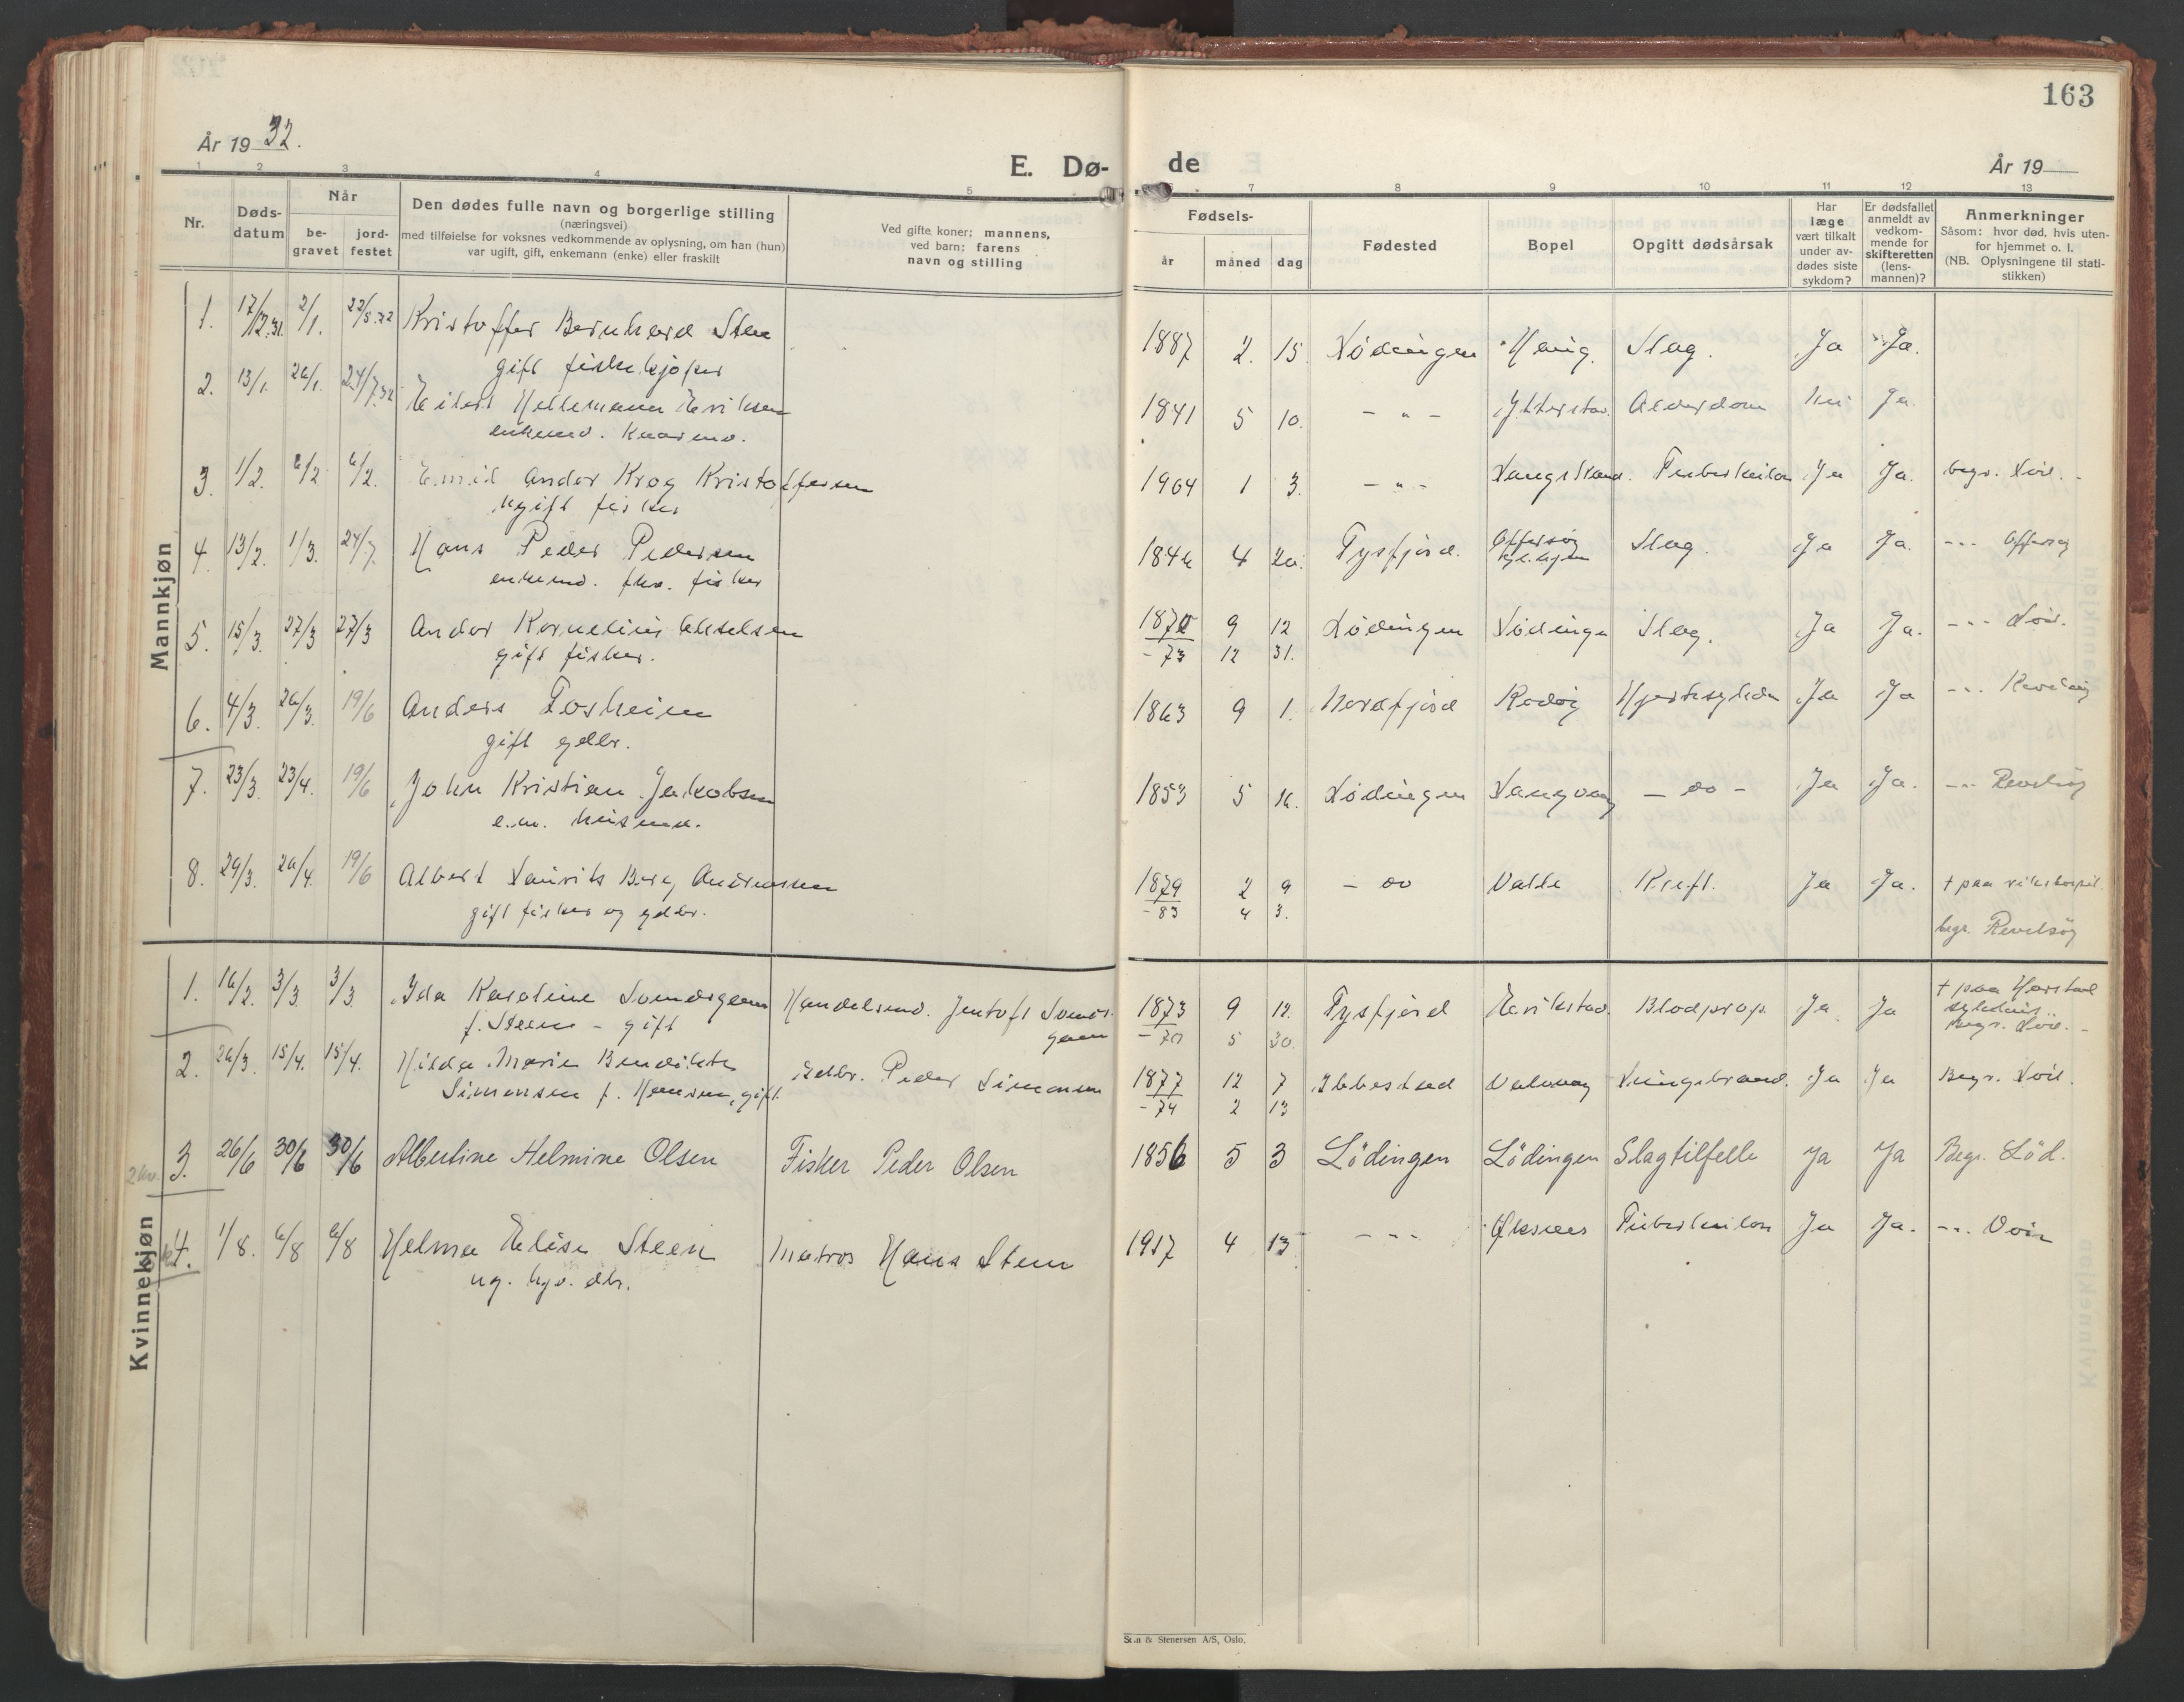 163
År 1932.
E. Dø-
de
År 19
1 2 3 4 5
6 7 8 9 10 11 12 13
Nr.
Døds-
datum
Når
be-
gravet
jord-
festet
Den dødes fulle navn og borgerlige stilling
(næringsvei)
med tilføielse for voksnes vedkommende av oplysning, om han (hun)
var ugift, gift, enkemann (enke) eller fraskilt
Ved gifte koner; mannens,
ved barn; farens
navn og stilling
Fødsels-
år måned dag
Fødested
Bopel
Opgitt dødsårsak
Har
læge
vært tilkalt
under av-
dødes siste
sykdom?
Er dødsfallet
anmeldt av
vedkom-
mende for
skifteretten
(lens-
mannen)?
Anmerkninger
Såsom: hvor død, hvis uten-
for hjemmet o. l.
(NB. Oplysningene til stati-
stikken)
Mannkjøn
1. 17/12.31. 2/1. 22/5.32 Kristoffer Bernhard Steen 1887 2. 15 Lödingen Slag. Ja Ja.
gift fiskekjöper
2. 13/1. 26/1. 24/7.32 Eilert Hellemann Eriksen 1841 5 10. - " - Ytterstad. Alderdom Nei Ja.
enkemd.
3. 1/2. 6/2 6/2. Emil Andor Krog Kristoffersen 1904 1 3. - " - Tuberkulose Ja Ja. begr. Löd. -
ugift fisker
4. 13/2. 1/3. 24/7. Hans Peder Pedersen 4 20. Tysfjord. Offersøy Slag. Ja Ja. - " - Offersøy
enkemd. fhv. fisker
5. 15/3. 27/3 27/3 Andor Kornelius Akselsen 1870 9 12 Lödingen Lödingen Slag. Ja Ja. - " - Löd.
gift fisker. - 73 12 31.
6. 4/3. 26/3. 19/6 Anders Torheim 1863 9 1. Nordfjord Rodöy Hjertesykdom Ja Ja - " -
gift gdbr.
7. 23/3. 23/4. 19/6 John Kristian Jakobsen 1853 5 16. Lödingen Langvaag - oo - Ja Ja. - " - Revelsöy
e.m. husmd.
8. 29/3. 26/4. 19/6 Albert Laurits Berg Andreassen 1879 2 9 - oo Valle Kreft. Ja Ja. + paa rikshospit.
gift fisker og gdbr. - 83 4 3. begr. Revelsöy
Kvinnekjøn
1. 16/2. 3/3 3/3 Ida Karoline f. Steen - gift Handelsmd. Jentoft 1873 9 12. Tysfjord Erikstad. Blodprop. Ja Ja + paa Harstad
- 70 5 30. sykehus.
begr. Löd. -
2. 26/3. 15/4. 15/4. Hilda Marie Bendikte Gdbr. Peder Simonsen 1877 12 7 Ibbestad Valvaag Lungebrand. Ja Ja Begr. Löd.
Simonsen f. Hansen, gift. - 74 2 13
3. 26/6 30/6 30/6 Albertine Helmine Olsen Fisker Peder Olsen 1856 5 3 Lödingen Lödingen Slagtilfelle Ja Ja Begr. Löd.
4. 1/8. 6/8 6/8 Helma Elise Steen Matros Hans Steen 1917 4 13 - " - Øksnes Tuberkulose Ja Ja. - " -
ug. hjv. dtr.
& Stenersen A/S, Oslo.